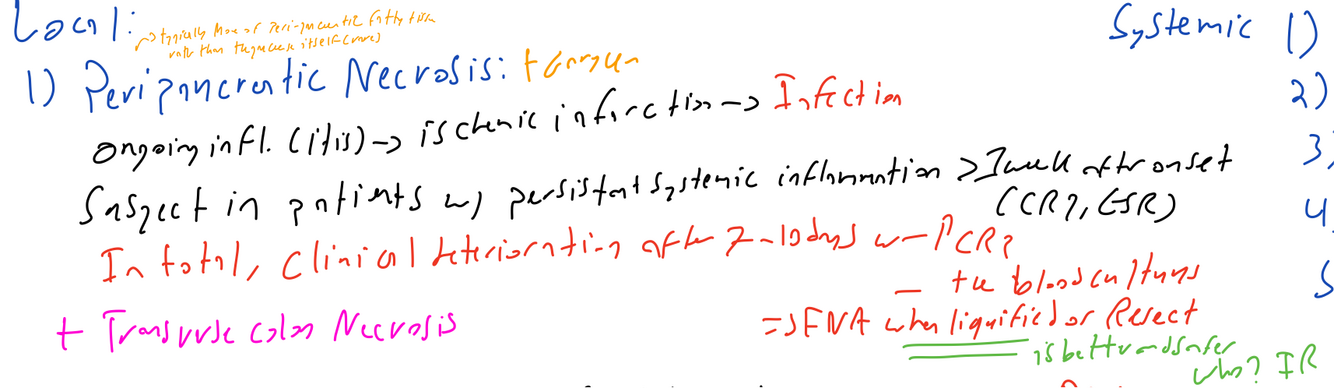 Local:
→ typically more of peri-pancreatic fatty tissue
rather than the pancreas itself (rare)
Systemic 1)
1) Peripancreatic Necrosis: +
2)
ongoing infl. (itis) → ischemic infarction → Infection
3)
Suspect in patients w/ persistant systemic inflammation > 1 week aftr onset
(CRP, ESR)
4
In total, Clinical deterioration after 7-10 days w ↑CRP
_ +ve blood cultures
5
+ Transverse colon Necrosis
=> FNA when liquified or Resect
is better and safer
who? IR